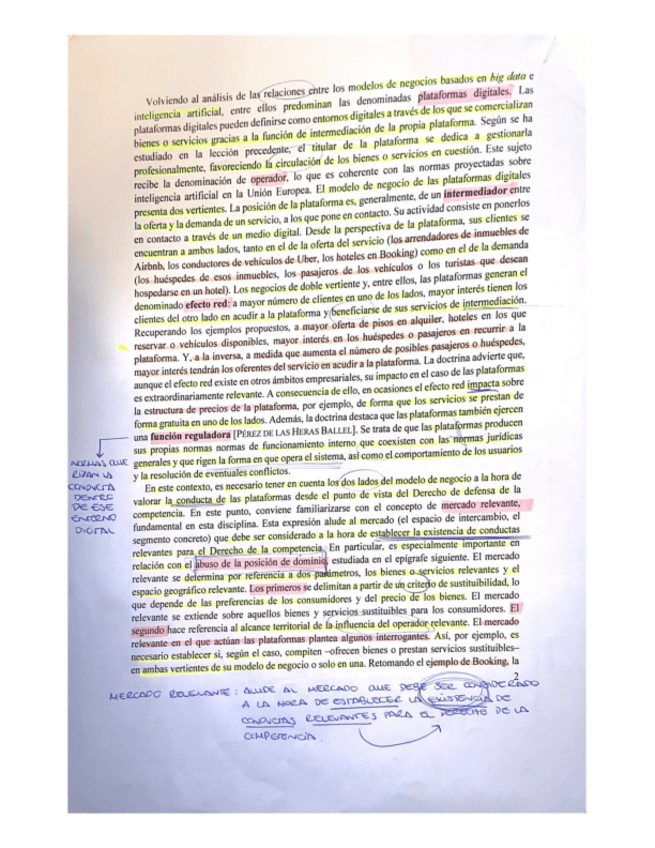 Volviendo al análisis de las relaciones entre los modelos de negocios basados en big data e
inteligencia artificial, entre ellos predominan las denominadas plataformas digitales. Las
plataformas digitales pueden definirse como entornos digitales a través de los que se comercializan
bienes o servicios gracias a la función de intermediación de la propia plataforma. Según se ha
estudiado en la lección precedente, el titular de la plataforma se dedica a gestionarla
profesionalmente, favoreciendo la circulación de los bienes o servicios en cuestión. Este sujeto
recibe la denominación de operador, lo que es coherente con las normas proyectadas sobre
inteligencia artificial en la Unión Europea. El modelo de negocio de las plataformas digitales
presenta dos vertientes. La posición de la plataforma es, generalmente, de un intermediador entre
la oferta y la demanda de un servicio, a los que pone en contacto. Su actividad consiste en ponerlos
en contacto a través de un medio digital. Desde la perspectiva de la plataforma, sus clientes se
encuentran a ambos lados, tanto en el de la oferta del servicio (los arrendadores de inmuebles de
Airbnb, los conductores de vehículos de Uber, los hoteles en Booking) como en el de la demanda
(los huéspedes de esos inmuebles, los pasajeros de los vehículos o los turistas que desean
hospedarse en un hotel). Los negocios de doble vertiente y, entre ellos, las plataformas generan el
denominado efecto red: a mayor número de clientes en uno de los lados, mayor interés tienen los
clientes del otro lado en acudir a la plataforma y beneficiarse de sus servicios de intermediación.
Recuperando los ejemplos propuestos, a mayor oferta de pisos en alquiler, hoteles en los que
reservar o vehículos disponibles, mayor interés en los huéspedes o pasajeros en recurrir a la
plataforma. Y, a la inversa, a medida que aumenta el número de posibles pasajeros o huéspedes,
mayor interés tendrán los oferentes del servicio en acudir a la plataforma. La doctrina advierte que,
aunque el efecto red existe en otros ámbitos empresariales, su impacto en el caso de las plataformas
es extraordinariamente relevante. A consecuencia de ello, en ocasiones el efecto red impacta sobre
la estructura de precios de la plataforma, por ejemplo, de forma que los servicios se prestan de
forma gratuita en uno de los lados. Además, la doctrina destaca que las plataformas también ejercen
una función reguladora [PÉREZ DE LAS HERAS BALLEL]. Se trata de que las plataformas producen
sus propias normas normas de funcionamiento interno que coexisten con las normas jurídicas
generales y que rigen la forma en que opera el sistema, así como el comportamiento de los usuarios
y la resolución de eventuales conflictos.
NORMAS QUE
RIGAN LA
CONDUCTA
DENTRO
DE ESE
ENTORNO
DIGITAL
En este contexto, es necesario tener en cuenta los dos lados del modelo de negocio a la hora de
valorar la conducta de las plataformas desde el punto de vista del Derecho de defensa de la
competencia. En este punto, conviene familiarizarse con el concepto de mercado relevante,
fundamental en esta disciplina. Esta expresión alude al mercado (el espacio de intercambio, el
segmento concreto) que debe ser considerado a la hora de establecer la existencia de conductas
relevantes para el Derecho de la competencia. En particular, es especialmente importante en
relación con el abuso de la posición de dominio, estudiada en el epígrafe siguiente. El mercado
relevante se determina por referencia a dos parámetros, los bienes o servicios relevantes y el
espacio geográfico relevante. Los primeros se delimitan a partir de un criterio de sustituibilidad, lo
que depende de las preferencias de los consumidores y del precio de los bienes. El mercado
relevante se extiende sobre aquellos bienes y servicios sustituibles para los consumidores. El
segundo hace referencia al alcance territorial de la influencia del operador relevante. El mercado
relevante en el que actúan las plataformas plantea algunos interrogantes. Así, por ejemplo, es
necesario establecer si, según el caso, compiten –ofrecen bienes o prestan servicios sustituibles–
en ambas vertientes de su modelo de negocio o solo en una. Retomando el ejemplo de Booking, la
2
MERCADO RELEVANTE: ALUDE AL MERCADO QUE DEBE SER CONSIDERADO
A LA HORA DE ESTABLECER LA EXISTENCIA DE
CONDUCTAS RELEVANTES PARA EL DERECHO DE LA
COMPETENCIA.